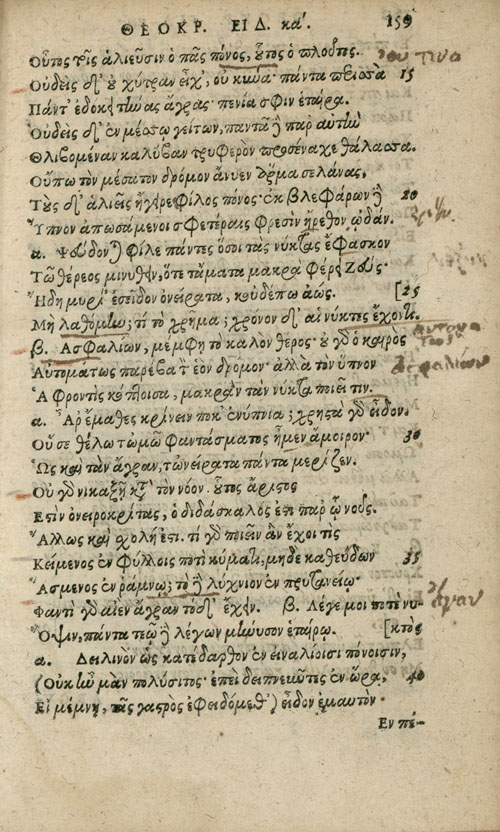 ΘΕΟΚΡ. ΕΙΔ. κα΄. 159
Οὗτος τοῖς ἁλιεῦσιν ὁ πᾶς πόνος, οὗτος ὁ πλοῦτος.
Οὐδεὶς δ' οὐ χύτραν εἶχ', οὐ κύνα· πάντα περισσὰ 15
Πάντ' ἐδόκει τήνας ἄγρας· πενία σφιν ἑταίρα.
Οὐδεὶς δ' ἐν μέσσῳ γείτων, παντᾶ δὲ παρ' αὐτὴν
Θλιβομέναν καλύβαν τρυφερὸν προσέναχε θάλασσα.
Οὔπω τὸν μέσατον δρόμον ἄνυεν ἅρμα σελάνας,
Τοὺς δ' ἁλιεῖς ἤγειρε φίλος πόνος· ἐκ βλεφάρων δὲ 20
Ὕπνον ἀπωσάμενοι σφετέραις φρεσὶν ἤρεθον ᾠδάν.
α. Ψεύδοντ̓ φίλε πάντες ὅσοι τὰς νύκτας ἔφασκον
Τῶ θέρεος μινύθειν, ὅτε τἄματα μακρὰ φέρει Ζεύς·
Ἤδη μυρί' ἐσεῖδον ὀνείρατα, κοὐδέπω ἀώς.
Μὴ λαθόμην; τί τὸ χρῆμα; χρόνον δ' αἱ νύκτες ἔχοντι. [25
β. Ἀσφαλίων, μέμφῃ τὸ καλὸν θέρος· οὐ γὰρ ὁ καιρὸς
Αὐτομάτως παρέβα τὸν ἑὸν δρόμον· ἀλλὰ τὸν ὕπνον
Ἁ φροντὶς κόπτοισα, μακρὰν τὰν νύκτα ποιεῖ τιν.
α. Ἆρ' ἔμαθες κρίνειν ποκ' ἐνύπνια; χρηστὰ γὰρ εἶδον.
Οὔ σε θέλω τὠμῶ φαντάσματος ἦμεν ἄμοιρον· 30
Ὡς καὶ τὰν ἄγραν, τὠνείρατα πάντα μερίζευ.
Οὐ γὰρ νικαξῇ κατὰ τὸν νόον. οὗτος ἄριστος
Ἐστὶν ὀνειροκρίτας, ὁ διδάσκαλός ἐστι παρ' ᾧ νοῦς.
Ἄλλως καὶ σχολή ἐστι. τί γὰρ ποιεῖν ἂν ἔχοι τὶς
Κείμενος ἐν φύλλοις ποτὶ κύματι, μηδὲ καθεύδων 35
Ἄσμενος ἐν ῥάμνῳ; τὸ δὲ λύχνιον ἐν πρυτανείῳ·
Φαντὶ γὰρ αἰὲν ἄγραν τόδ' ἔχειν. β. Λέγε μοι ποτε νυ-
Ὄψιν, πάντα τεῷ δὲ λέγων μάνυσον ἑταίρῳ. [κτὸς
α. Δειλινὸν ὡς κατέδαρθον ἐν εἰναλίοισι πόνοισιν,
(Οὐκ ἦν μὰν πολύσιτος· ἐπεὶ δειπνεῦντες ἐν ὥρᾳ, 40
Εἰ μέμνῃ, τᾶς γαστρὸς ἐφειδόμεθ') εἶδον ἐμαυτὸν
Ἐν πέ-